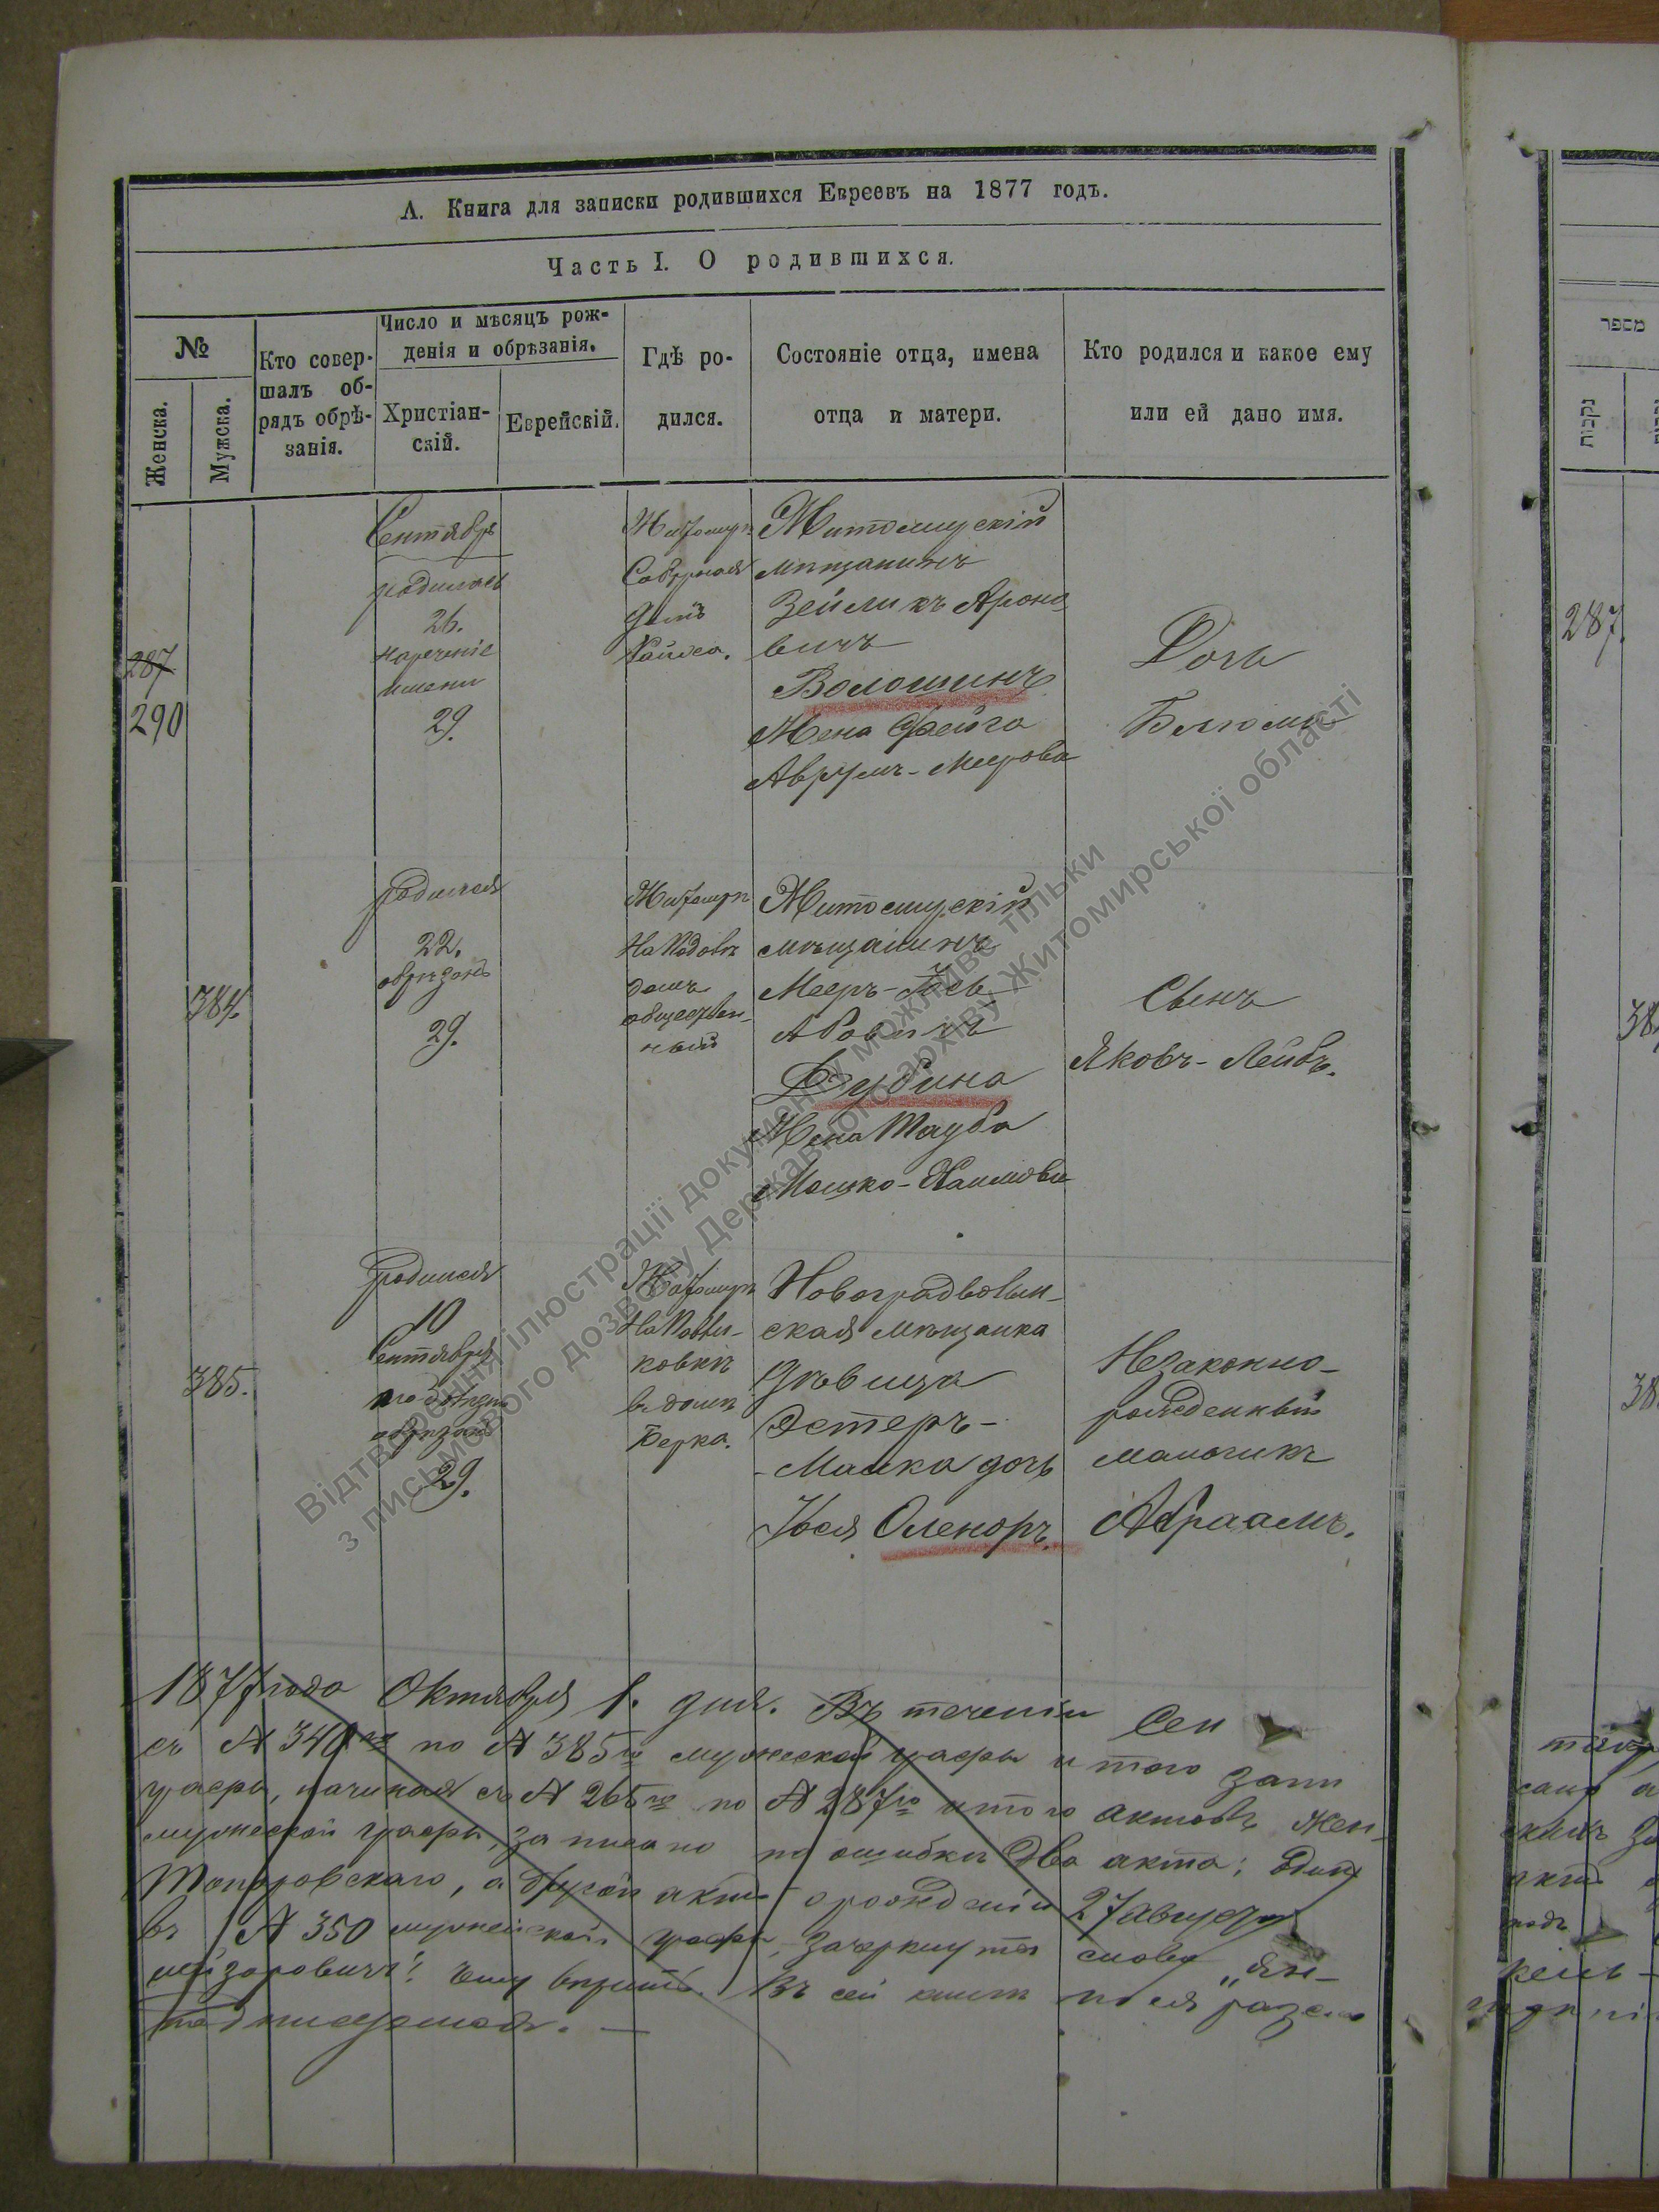 А. Книга для записки родившихся Евреевъ на 1877 годъ.
Часть I. О родившихся.
№
Женска.
Мужска.
Кто совер-
шалъ об-
рядъ обрѣ-
занія.
Число и мѣсяцъ рож-
денія и обрѣзанія.
Христіан-
скій.
Еврейскій.
Гдѣ ро-
дился.
Состояніе отца, имена
отца и матери.
Кто родился и какое ему
или ей дано имя.
מספר
נקבות
287
290
Сентябрь
родилась
26.
нареченіе
имени
29.
Житомиръ
Соборная
домъ
Житомирскій
мѣщанинъ
Зейликъ Ароно
вичъ
Волошинъ
Жена Фейга
Аврумъ-Меерова
Дочь
Блюма
287.
384.
родился
22.
обрѣзанъ
29.
Житомиръ
домъ
обществен-
ный
Житомирскій
мѣщанинъ
Мееръ-Іось
Дубина
Жена Тауба
Мошко-Хаимова
Сынъ
Яковъ-Лейбъ.
38
385.
родился
10
Сентября
по болѣзни
обрѣзанъ
29.
Житомиръ
ковкѣ
въ домѣ
Берка.
Новоградволын-
ская мѣщанка
дѣвица
Эстеръ-
-Малка дочь
Іося Оленоръ.
Незаконно-
рожденный
мальчикъ
Абраамъ.
38
1877 года Октября 1. дня. Въ теченіи Сен
съ № 340го по № 385го мужеской графы и того запи
графы, начиная съ № 265го по № 287го итого актовъ Жен-
мужеской графы, записано по ошибкѣ два акта: Одинъ
Топоровскаго, а другой актъ о рожденіи 27 августа
въ № 350 мужеской графы, зачеркнуто слова „Ян-
Въ сей книгѣ
подписуемся. —
Відтворення ілюстрації документу можливе тільки
з письмового дозволу Державного архіву Житомирської області